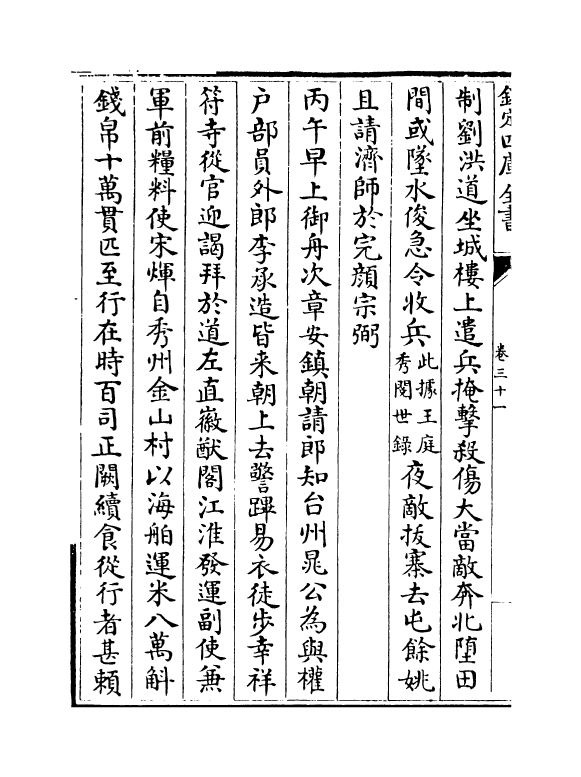 欽定四庫全書
卷三十一
制劉洪道坐城樓上遣兵掩擊殺傷大當敵奔北墮田
間或墜水俊急令收兵此據王庭秀閱世錄夜敵拔寨去屯餘姚
且請濟師於完顏宗弼
丙午早上御舟次章安鎮朝請郎知台州晁公為與權
户部員外郎李承造皆来朝上去警蹕易衣徒步幸祥
符寺從官迎謁拜於道左直徽猷閣江淮發運副使兼
軍前糧料使宋煇自秀州金山村以海舶運米八萬斛
錢帛十萬貫匹至行在時百司正闕續食從行者甚賴